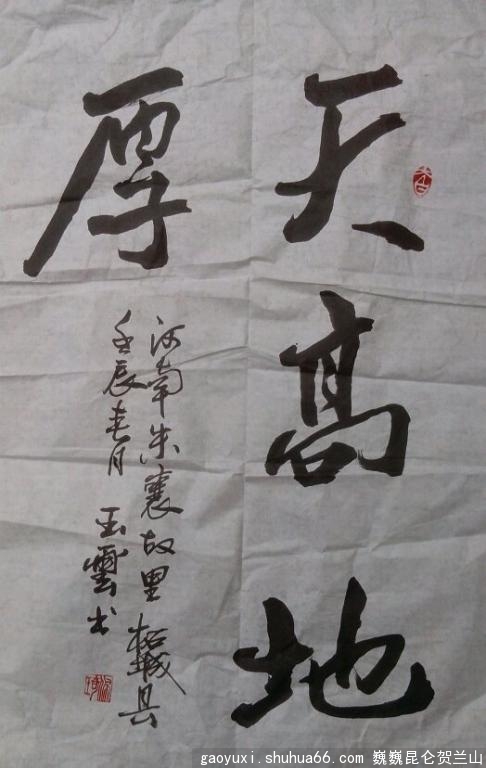 天高地
厚
河南朱襄故里柘城县
壬辰春月 玉雲书
gaoyuxi.shuhua66.com 巍巍昆仑贺兰山